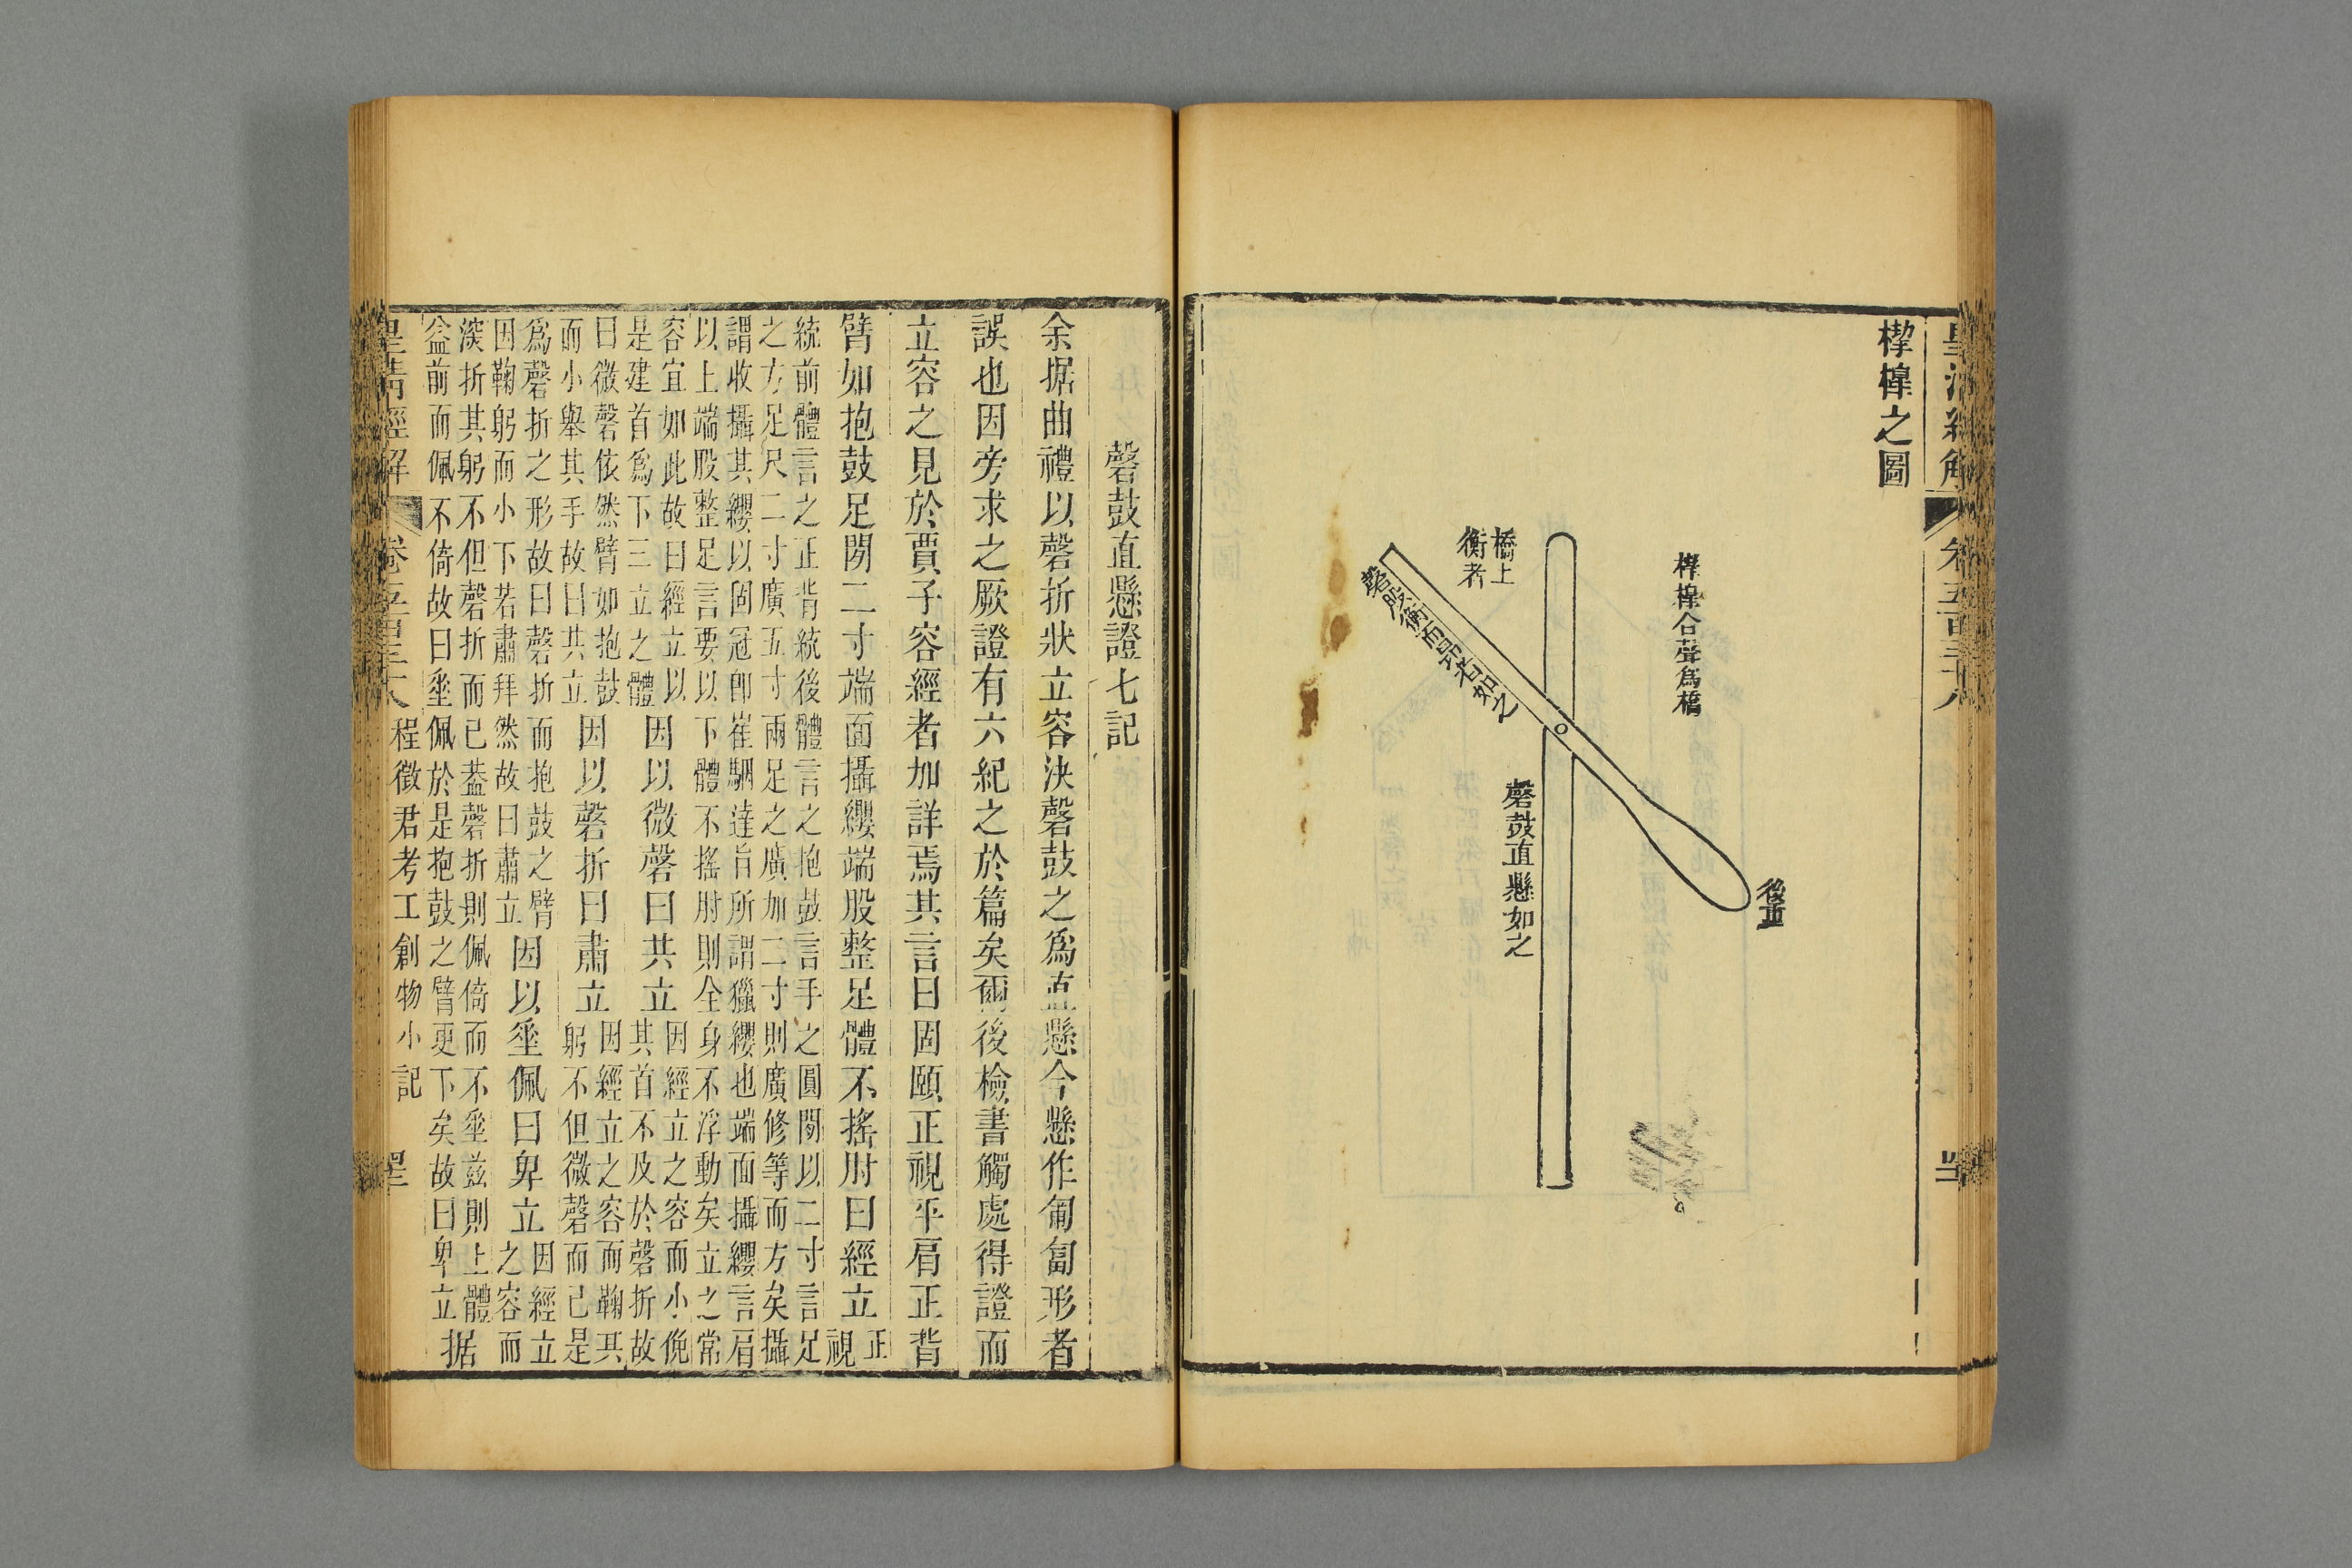 卷五百三十八
楔槔之圖
楔槔合聲爲橋
後重
橋上
衡者
磬股衡而昂者如之
磬鼓直懸如之
磬鼓直懸證七記
余据曲禮以磬折狀立容決磬鼓之爲直懸今懸作匍匐形者
誤也因旁求之厥證有六紀之於篇矣爾後檢書觸處得證而
立容之見於賈子容經者加詳焉其言曰固頤正視平肩正背
臂如抱鼓足閒二寸端面攝纓端股整足體不搖肘曰經立正
視
統前體言之正背統後體言之抱鼓言手之圓閒以二寸言足
之方足尺二寸廣五寸兩足之廣加二寸則廣修等而方矣攝
謂收攝其纓以固冠卽崔駰達旨所謂獵纓也端面攝纓言肩
以上端股整足言要以下體不搖肘則全身不浮動矣立之常
容宜如此故曰經立以
是建首爲下三立之體
因以微磬曰共立
因經立之容而小俛
其首不及於磬折故
曰微磬依然臂如抱鼓
而小舉其手故曰共立
因以磬折曰肅立
因經立之容而鞠其
躬不但微磬而已是
爲磬折之形故曰磬折而抱鼓之臂
因鞠躬而小下若肅拜然故曰肅立
因以垂佩曰卑立
因經立
之容而
湥折其躬不但磬折而已蓋磬折則佩倚而不垂茲則上體
益前而佩不倚故曰垂佩於是抱鼓之臂更下矣故曰卑立
据
皇清經解 卷五百三十八 程徵君考工創物小記